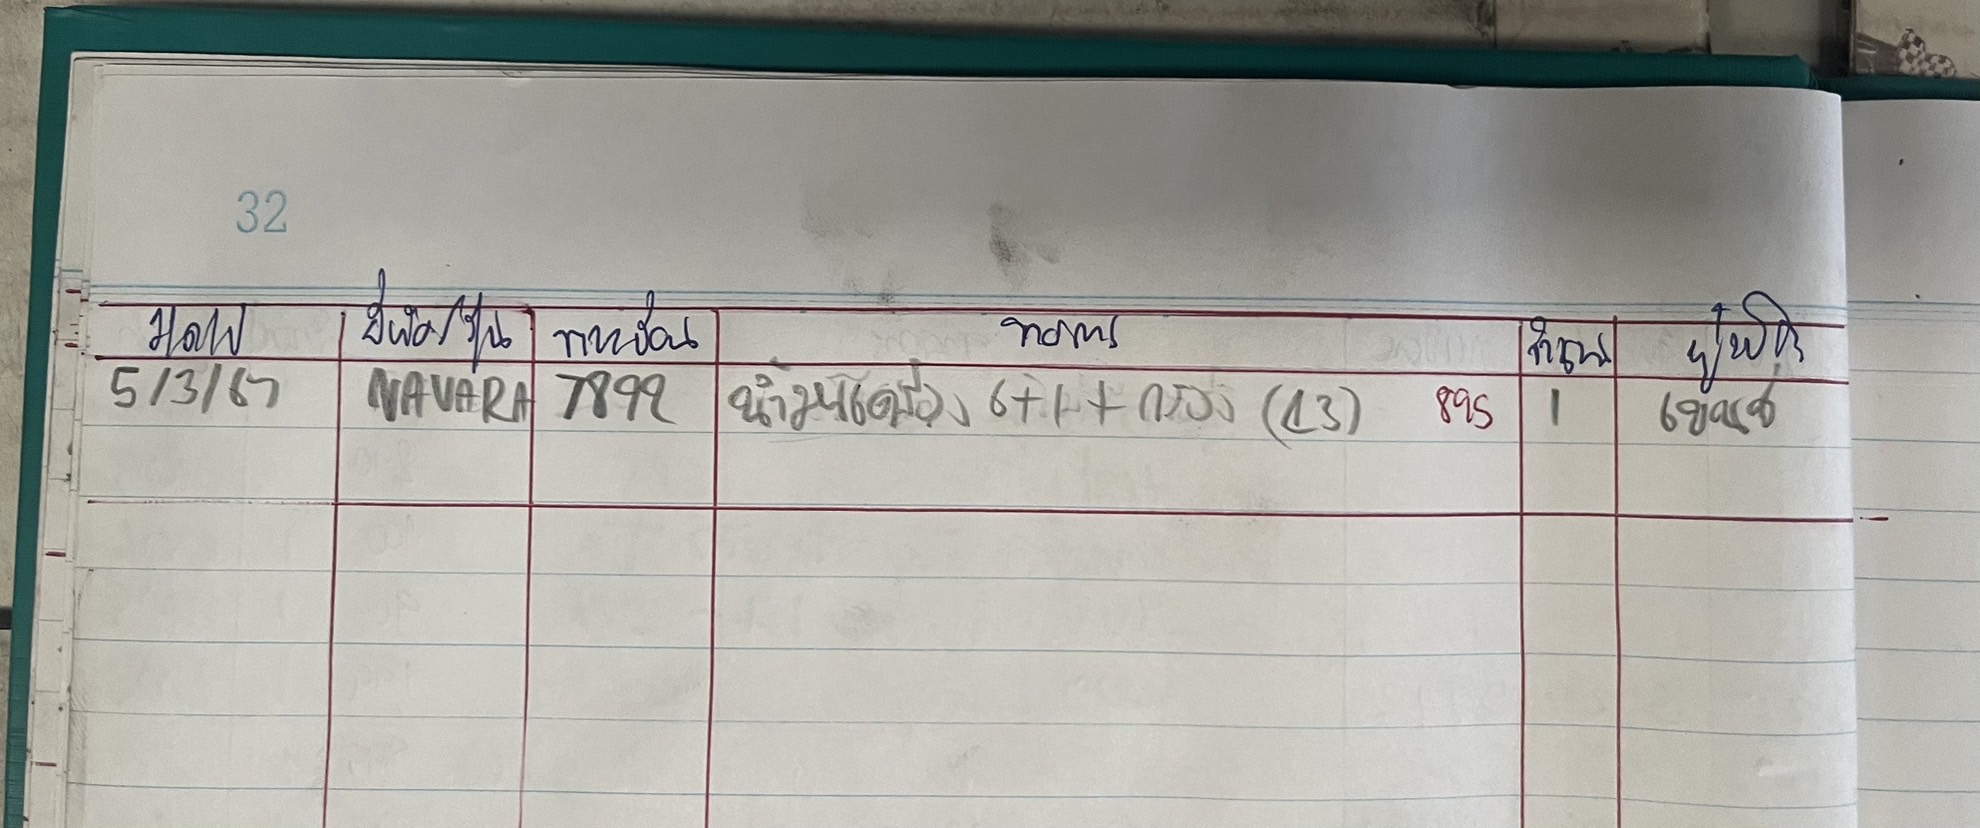 32
ว/ด/ป ยี่ห้อ/รุ่น ทะเบียน รายการ จำนวน ผู้เบิก
5/3/67 NAVARA 7899 น้ำมันเครื่อง 6+1 + กรอง (13) 895 1